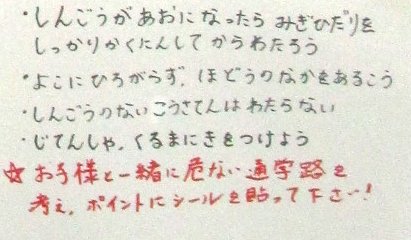 ・しんごうがあおになったら みぎひだりを
しっかりかくにんして からわたろう
・よこにひろがらず、ほどうのなかをあるこう
・しんごうのない こうさてんは わたらない
・じてんしゃ、くるまにきをつけよう
☆お子様と一緒に危ない通学路を
考え、ポイントにシールを貼って下さい!